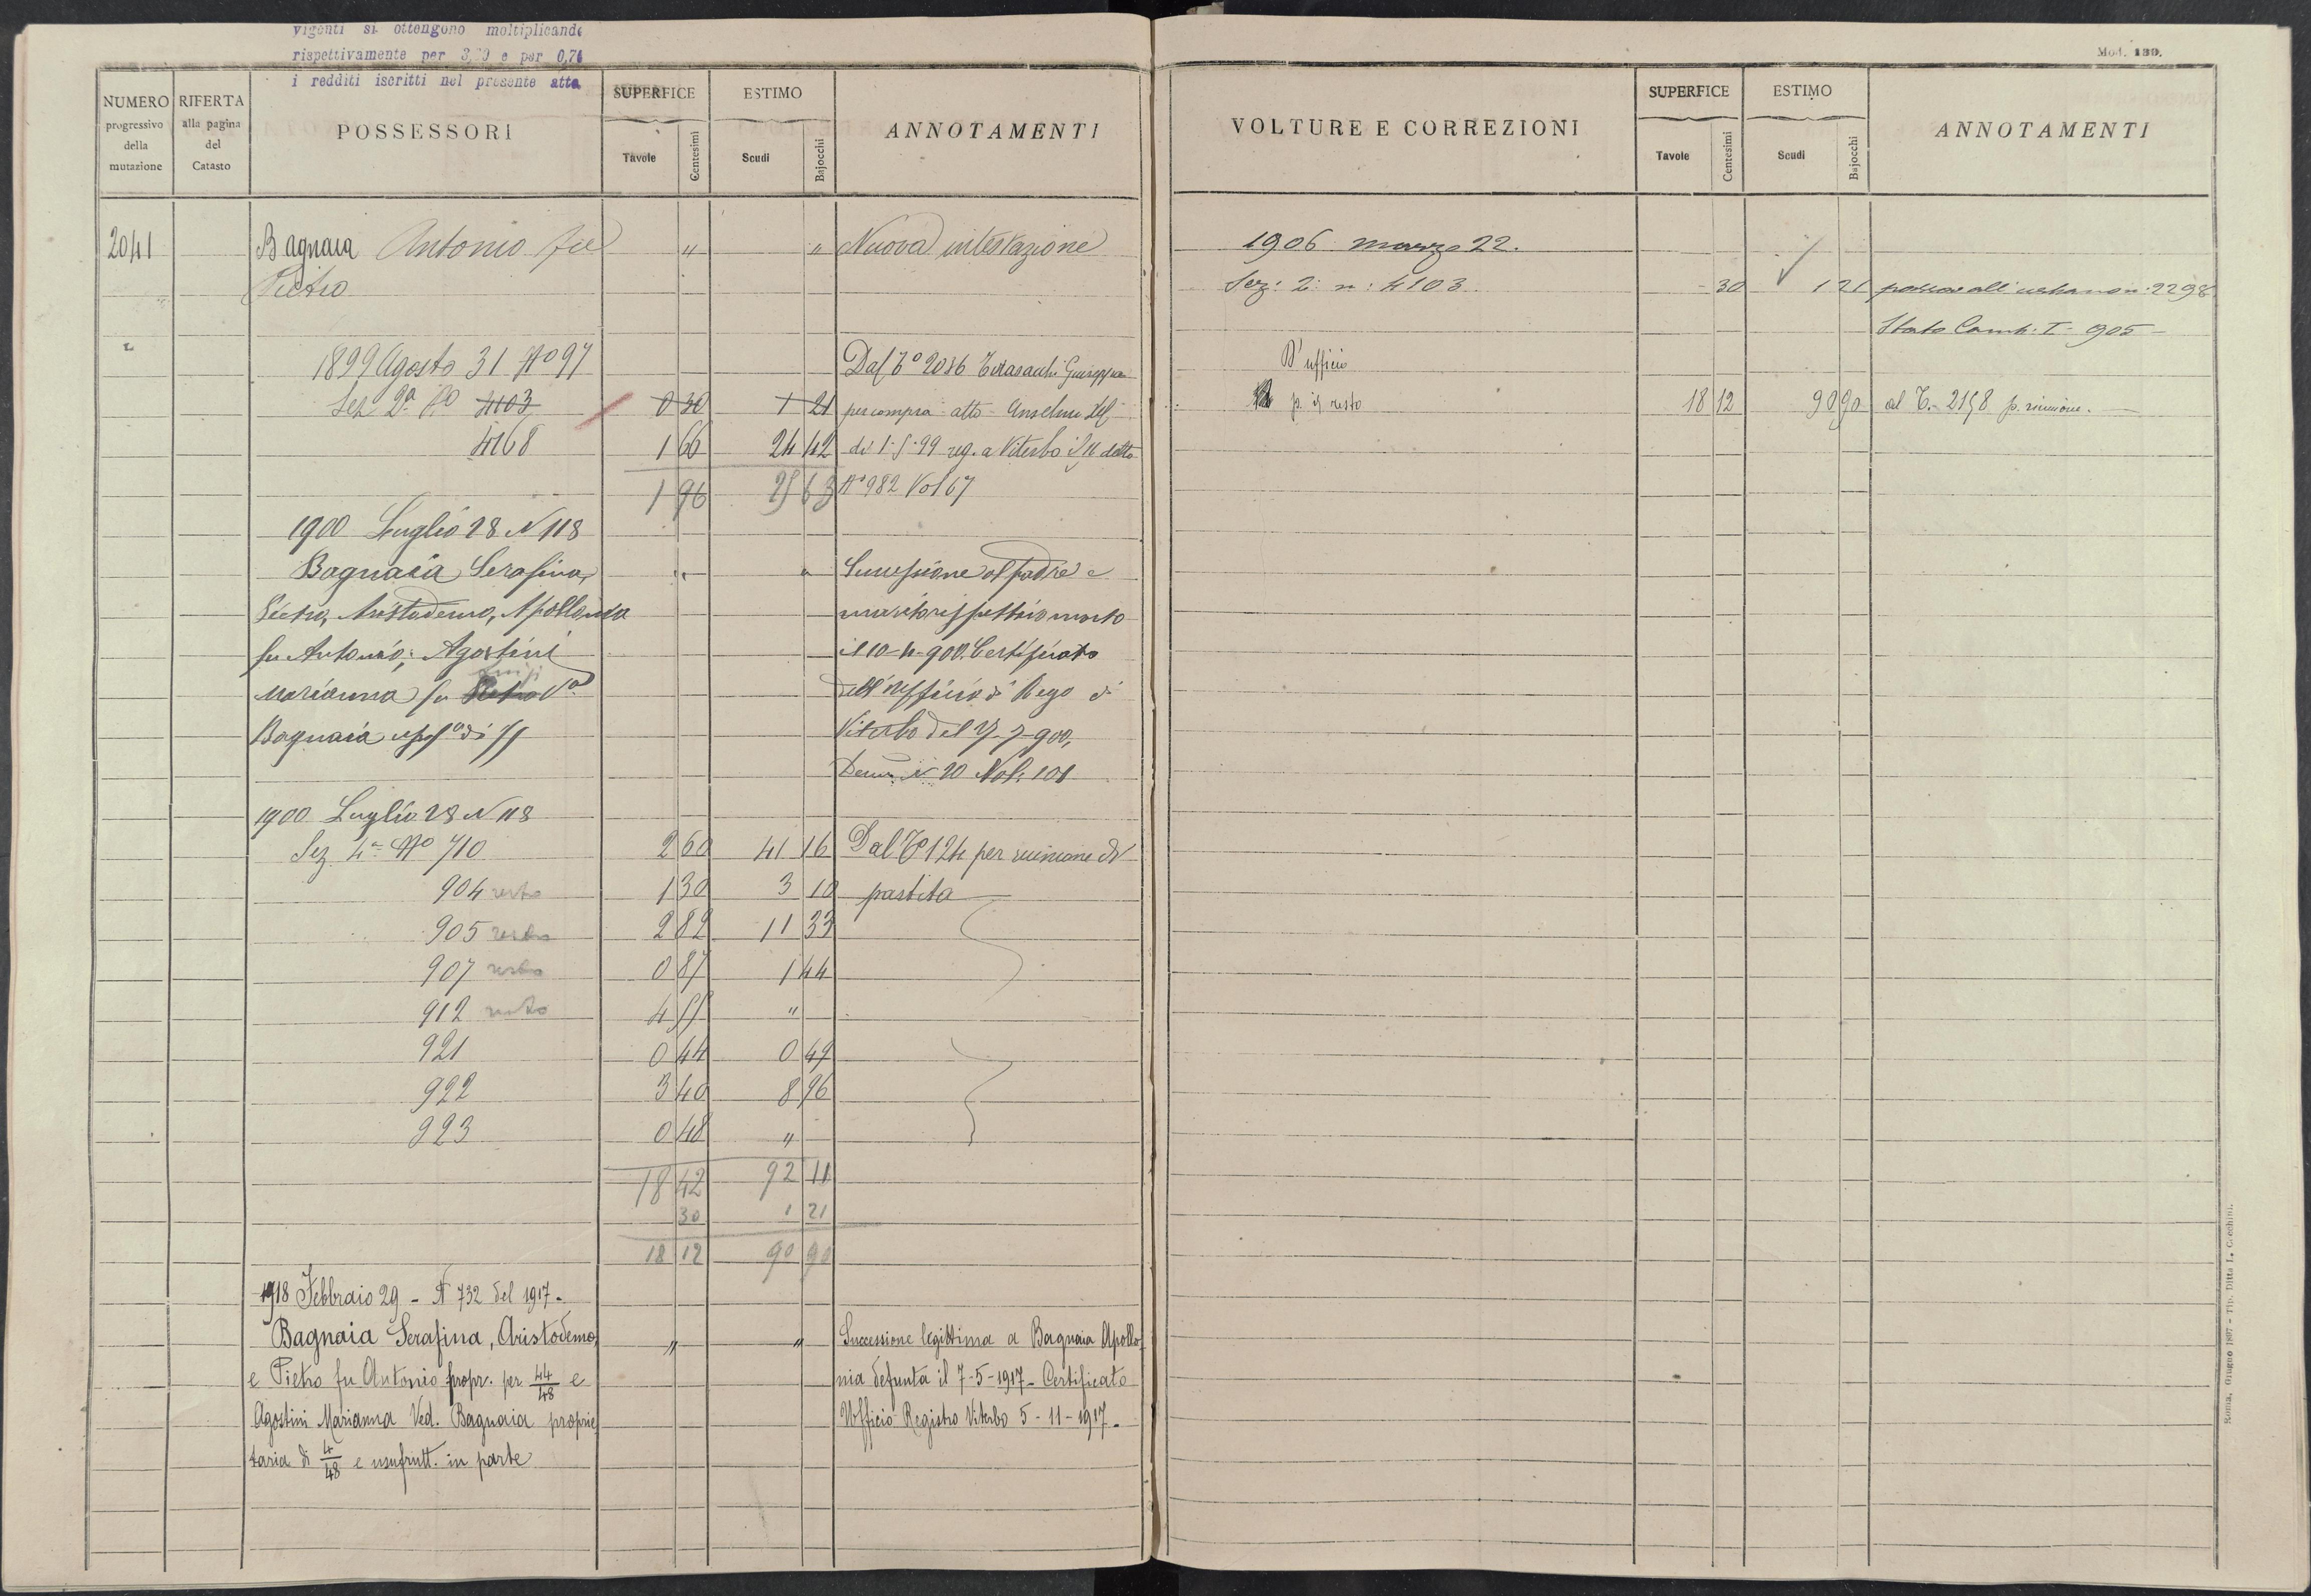 vigenti si ottengono moltiplicando
rispettivamente per e per 0,74
i redditi iscritti nel presente atto
NUMERO progressivo della mutazione
RIFERTA alla pagina del Catasto
POSSESSORI
SUPERFICE Tavole Centesimi
ESTIMO Scudi Bajocchi
ANNOTAMENTI
2041 Bagnaia Antonio fu " " Nuova intestazione
Pietro
1899 Agosto 31 No 97 Dal To 2036 Giuseppa
Sez 2a No 4103 0 30 1 21 per compra atto Anselmi
4168 1 66 24 42 di 1-5-99 reg. a Viterbo il detto
1 96 25 63 No 982 Vol 67
1900 Luglio 28 N 118
Bagnaia Serafina, " " Successione al padre e
Pietro, Aristodemo, Apollonia marito rispettivo morto
fu Antonio; Agostini il 10-4-900. Certificato
Marianna fu Pietro Va dell'ufficio di Rego di
Bagnaia Viterbo del 7-7-900,
N 20 Vol. 101
1900 Luglio 28 N 118
Sez 4a No 710 2 60 41 16 Dal To 124 per riunione di
904 resto 1 30 3 10 partita
905 resto 2 82 11 33
907 resto 0 87 1 44
912 resto 4 55 "
921 0 44 0 49
922 3 40 8 96
923 0 48 "
18 42 92 11
30 1 21
18 12 90 90
1918 Febbraio 29 - N 732 del 1917 -
Bagnaia Serafina, Aristodemo, " " Successione legittima a Bagnaia Apollo-
e Pietro fu Antonio propr. per 44/48 e nia defunta il 7-5-1917 - Certificato
Agostini Marianna Ved. Bagnaia proprie Ufficio Registro Viterbo 5-11-1917 -
taria di 4/48 e usufrutt. in parte
Mod. 130.
VOLTURE E CORREZIONI
SUPERFICE Tavole Centesimi
ESTIMO Scudi Bajocchi
ANNOTAMENTI
1906 marzo 22.
Sez: 2: n: 4103 30 1 21 passa all'urbano n: 2298
Stato Camb: I - 905 -
D'ufficio
p. il resto 18 12 90 90 al T. - 2158 p. riunione. -
Roma, Giugno 1897 - Tip. Ditta L. Cecchini.